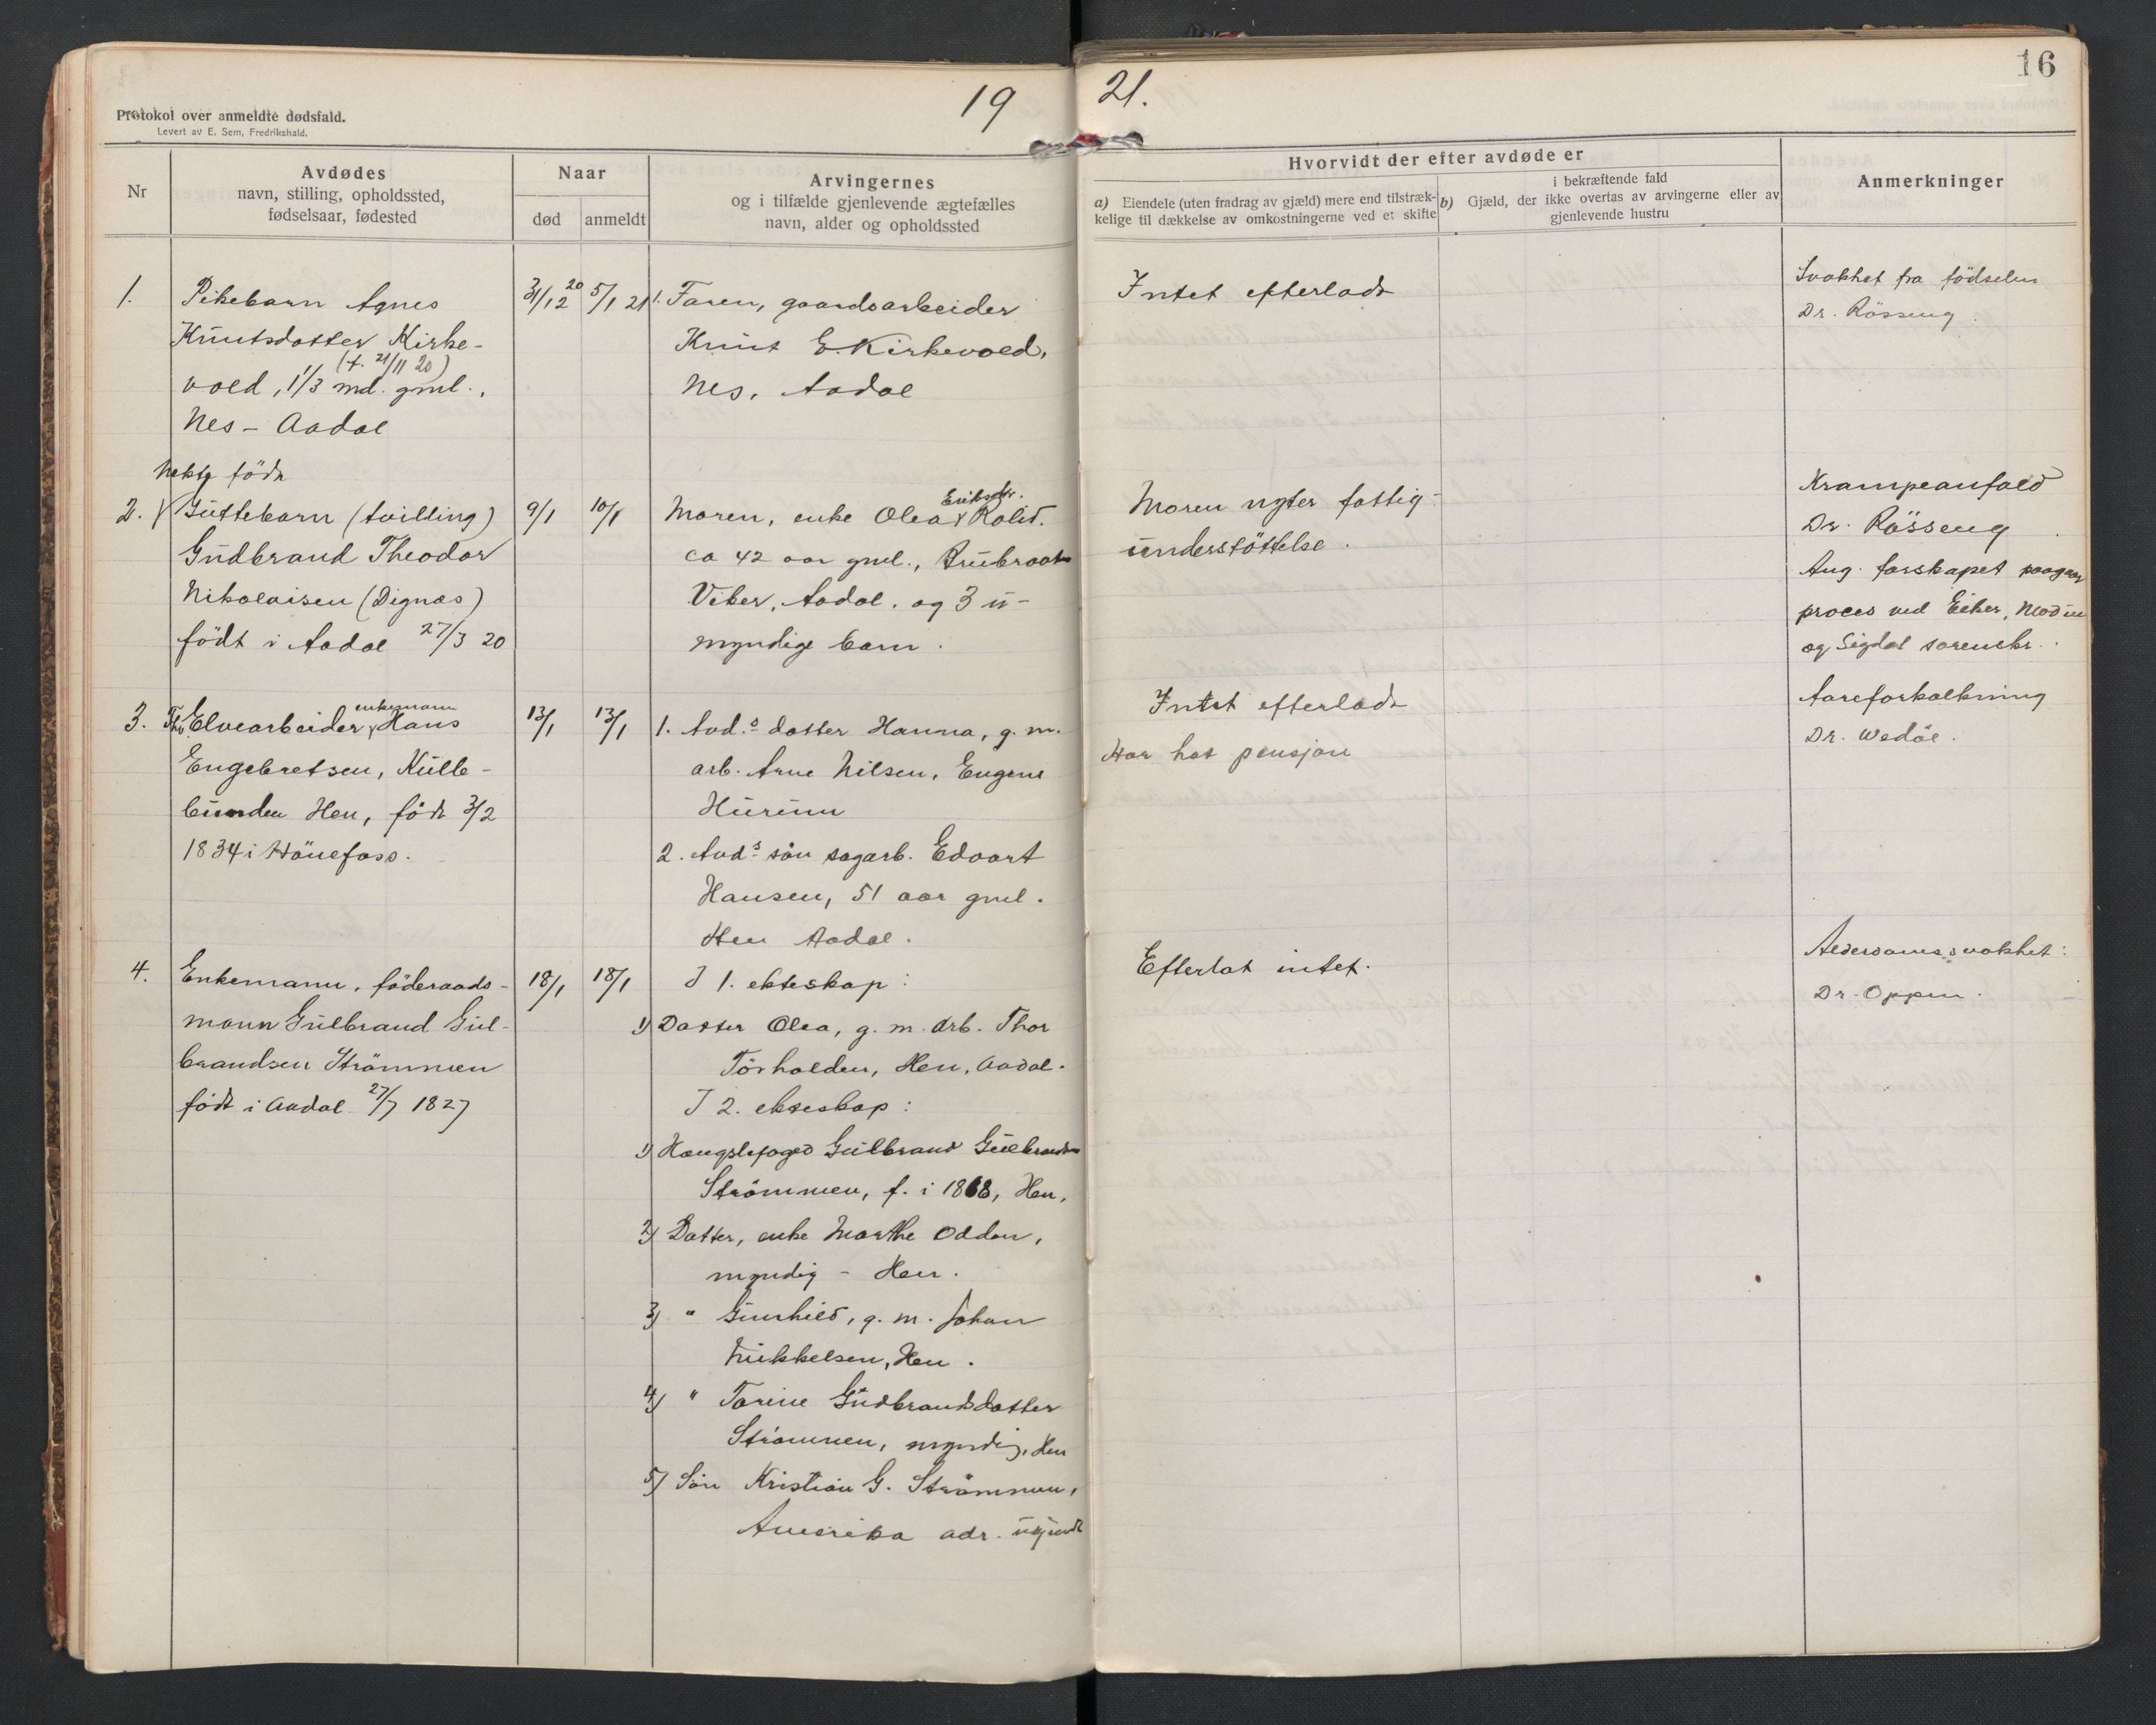 19
21.
16
Protokol over anmeldte dødsfald.
Levert av E. Sem, Fredrikshald.
Nr
Avdødes
navn, stilling, opholdssted,
fødselsaar, fødested
Naar
død
anmeldt
Arvingernes
og i tilfælde gjenlevende ægtefælles
navn, alder og opholdssted
Hvorvidt der efter avdøde er
a) Eiendele (uten fradrag av gjæld) mere end tilstræk-
kelige til dækkelse av omkostningerne ved et skifte
i bekræftende fald
b) Gjæld, der ikke overtas av arvingerne eller av
gjenlevende hustru
Anmerkninger
1.
Pikebarn Agnes
Knutsdatter Kirke-
(f. 21/11 20)
vold, 1 1/3 md. gml.,
Nes - Aadal
31/12 20
5/1 21
1. Faren, gaardsarbeider
Knut E. Kirkevold,
Nes, Aadal
Intet efterladt
Svakhet fra fødselen
Dr. Rösseng.
født
2.
Guttebarn (tvilling)
Gudbrand Theodor
Nikolaisen (Dignæs)
født i Aadal 27/3 20
9/1
10/1
Eriksdtr.
Moren, enke Olea Rolid.
ca 42 aar gml.,
Viker, Aadal. og 3 u-
myndige barn.
Moren nyter fattig-
understøttelse.
Krampeanfald
Dr. Rösseng
Ang. farskapet paagaar
proces ved Eiker, Modum
og Sigdal sorenskr.
3.
enkemann
Elvearbeider Hans
Engebretsen, Kulle-
bunden Hen, født 3/2
1834 i Hönefoss.
13/1
13/1
1. Avd.s datter Hanna, g. m.
arb. Arne Nilsen, Eugene
Hurum
2. Avd.s søn sagarb. Edvart
Hansen, 51 aar gml.
Hen Aadal.
Intet efterladt
Har hat pensjon
Aareforkalkning
Dr. Wedøe.
4.
Enkemann, föderaads-
mann Gulbrand Gul-
brandsen Strömmen
født i Aadal 27/7 1827
18/1
18/1
I 1. ekteskap:
1) Datter Olea, g. m. arb. Thor
Törhalden, Hen, Aadal.
I 2. ekteskap:
1) Hængslefoged Gulbrand Gulbrandsen
Strömmen, f. i 1868, Hen,
2) Datter, enke Marthe Odden,
myndig - Hen.
3) " Gunhild, g. m. Johan
Mikkelsen, Hen.
4) " Torine Gudbrandsdatter
Strömmen, myndig, Hen
5) Søn Kristian G. Strömmen,
Amerika adr. ukjendt
Efterlat intet.
Alderdomssvakhet:
Dr. Oppen.